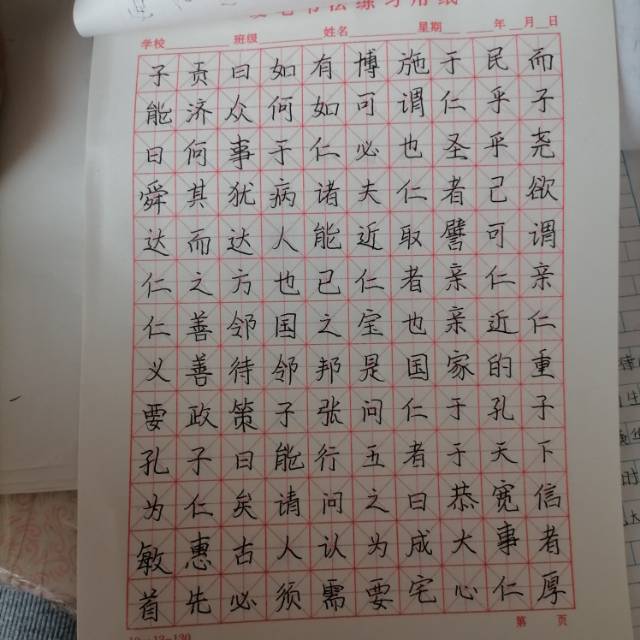 学校 班级 姓名 星期 年 月 日
子贡曰如有博施于民而
能济众何如可谓仁乎子
曰何事于仁必也圣乎尧
舜其犹病诸夫仁者己欲
达而达人能近取譬可谓
仁之方也已仁者亲仁亲
仁善邻国之宝也亲近仁
义善待邻邦是国家的重
要政策子张问仁于孔子
孔子曰能行五者于天下
为仁矣请问之曰恭宽信
敏惠古人认为成大事者
首先必须需要宅心仁厚
第 页